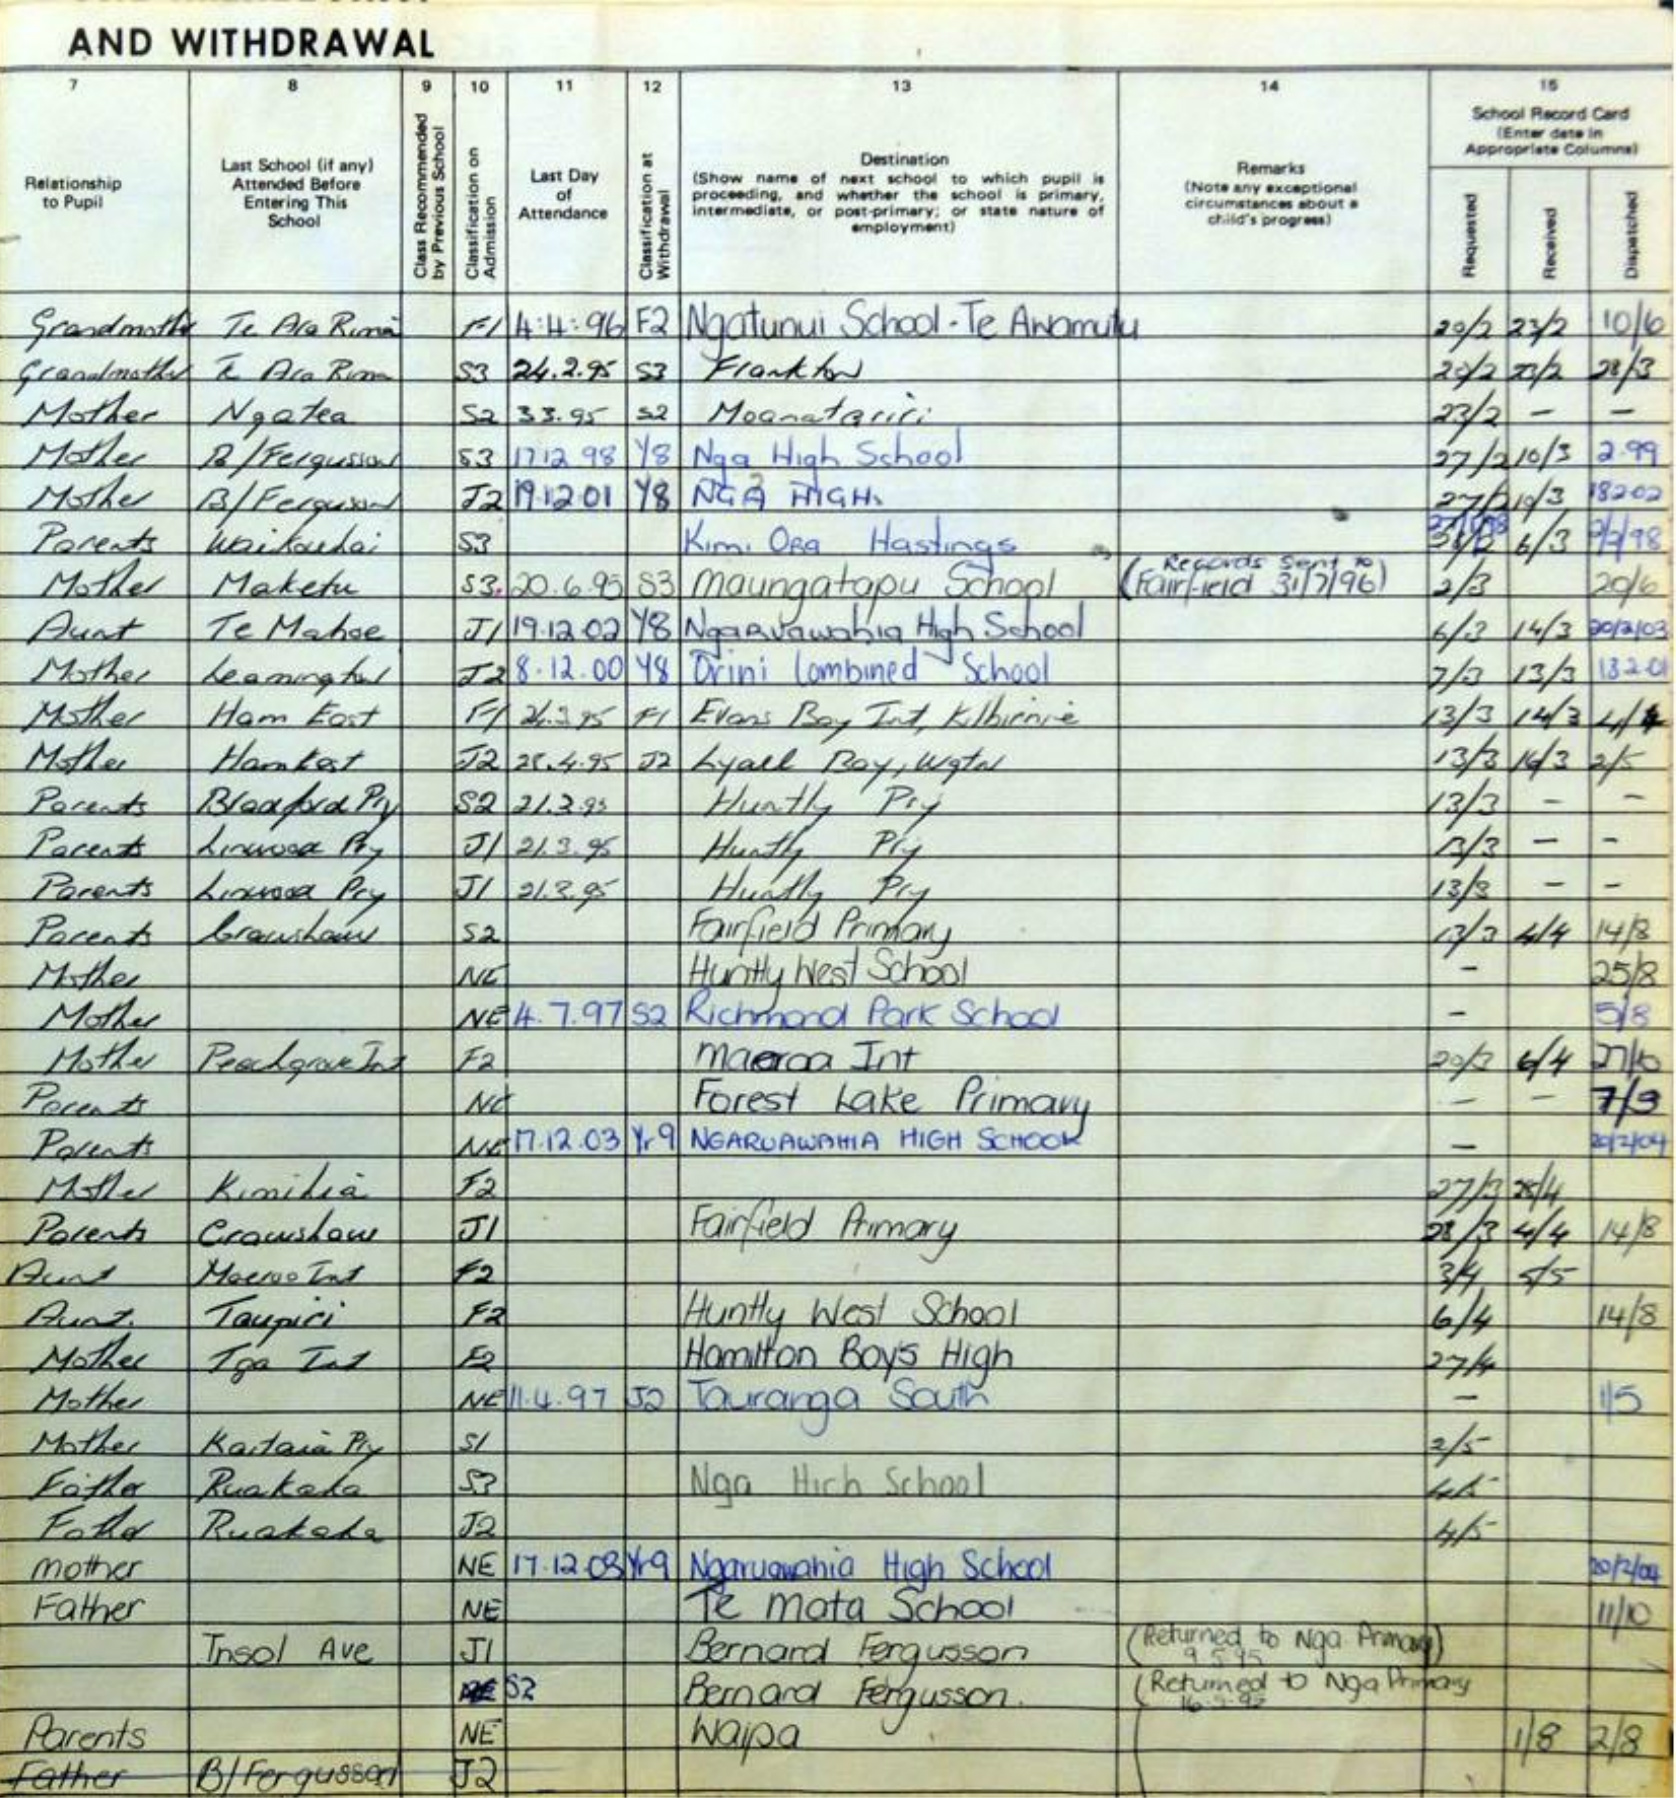 AND WITHDRAWAL
7 8 9 10 11 12 13 14 15
Relationship to Pupil
Last School (if any) Attended Before Entering This School
Class Recommended by Previous School
Classification on Admission
Last Day of Attendance
Classification at Withdrawal
Destination
(Show name of next school to which pupil is proceeding, and whether the school is primary, intermediate, or post-primary; or state nature of employment)
Remarks
(Note any exceptional circumstances about a child's progress)
School Record Card
(Enter date in Appropriate Columns)
Requested Received Dispatched
Grandmother Te Ara Rima F1 4:4:96 F2 Ngatunui School-Te Awamutu 20/2 23/2 10/6
Grandmother Te Ara Rima S3 24.2.95 S3 Frankton 20/2 23/2 28/3
Mother Ngatea S2 3.3.95 S2 Moanatariri 23/2 - -
Mother B/Fergusson S3 17 12 98 Y8 Nga High School 27/2 10/3 2.99
Mother B/Fergusson J2 19.12.01 Y8 NGA HIGH. 27/2 10/3 18202
Parents Waikouhai S3 Kimi Ora Hastings 6/3
Mother Maketu S3. 20.6.95 S3 Maungatapu School (Records Sent to Fairfield 31/7/96) 2/3 20/6
Aunt Te Mahoe J1 19.12.02 Y8 Ngaruawahia High School 6/3 14/3 20/2/03
Mother Leamington J2 8.12.00 Y8 Orini Combined School 7/3 13/3 13 2 01
Mother Ham East F1 F1 Evans Bay Int, Kilbirnie 13/3 14/3
Mother Ham East J2 28.4.95 J2 Lyall Bay, Wgtn 13/3 16/3 2/5
Parents Bradford Pry S2 21.3.95 Huntly Pry 13/3 - -
Parents Linwood Pry J1 21.3.95 Huntly Pry 13/3 - -
Parents Linwood Pry J1 21.3.95 Huntly Pry 13/3 - -
Parents Crawshaw S2 Fairfield Primary 13/3 4/4 14/8
Mother NE Huntly West School - 25/8
Mother NE 4.7.97 S2 Richmond Park School - 5/8
Mother Peachgrove Int F2 Maeroa Int 20/3 6/4 27/10
Parents NE Forest Lake Primary - - 7/3
Parents NE 17.12.03 Yr9 NGARUAWAHIA HIGH SCHOOL - 20/2/04
Mother Kimihia F2 27/3 28/4
Parents Crawshaw J1 Fairfield Primary 28/3 4/4 14/8
Aunt Maeroa Int F2 3/4 5/5
Aunt. Taupiri F2 Huntly West School 6/4 14/8
Mother Tga Int F2 Hamilton Boys High 27/4
Mother NE 11.4.97 J2 Tauranga South - 1/5
Mother Kaitaia Pry S1 2/5
Father Ruakaka S3 Nga High School 4/5
Father Ruakaka J2 4/5
Mother NE 17.12.03 Yr9 Ngaruawahia High School 20/2/04
Father NE Te Mata School 11/10
Insol Ave J1 Bernard Fergusson (Returned to Nga Primary) 9.5.95
S2 Bernard Fergusson. (Returned to Nga Primary
Parents NE Waipa 1/8 2/8
Father B/Fergusson J2